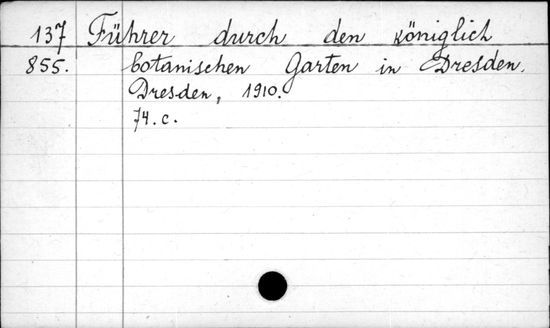 137 Führer durch den königlich
855. botanischen Garten in Dresden.
Dresden, 1910.
74. c.